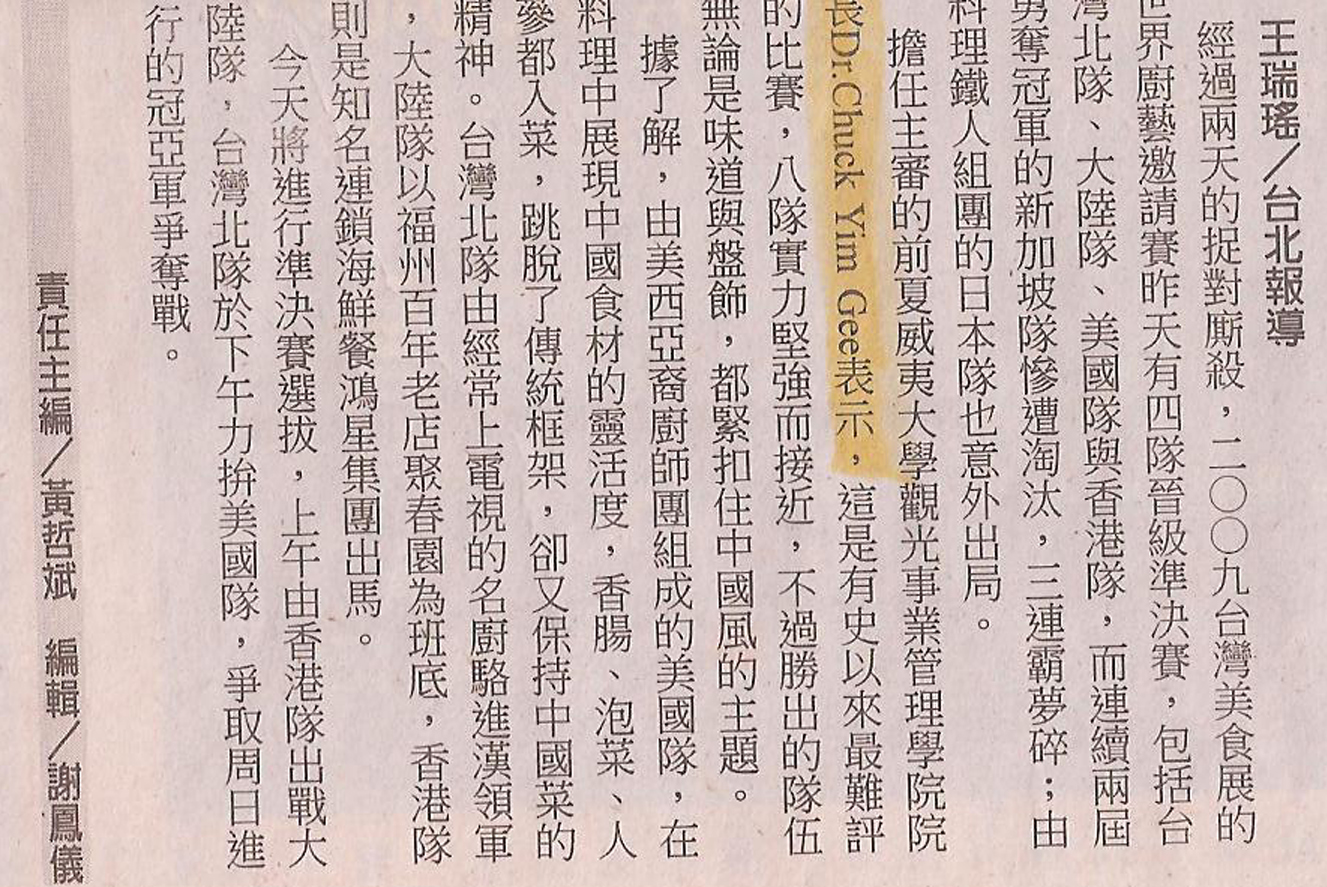 王瑞瑤／台北報導
經過兩天的捉對廝殺，二〇〇九台灣美食展的
世界廚藝邀請賽昨天有四隊晉級準決賽，包括台
灣北隊、大陸隊、美國隊與香港隊，而連續兩屆
勇奪冠軍的新加坡隊慘遭淘汰，三連霸夢碎；由
料理鐵人組團的日本隊也意外出局。
擔任主審的前夏威夷大學觀光事業管理學院院
長Dr.Chuck Yim Gee表示，這是有史以來最難評
的比賽，八隊實力堅強而接近，不過勝出的隊伍
無論是味道與盤飾，都緊扣住中國風的主題。
據了解，由美西亞裔廚師團組成的美國隊，在
料理中展現中國食材的靈活度，香腸、泡菜、人
參都入菜，跳脫了傳統框架，卻又保持中國菜的
精神。台灣北隊由經常上電視的名廚駱進漢領軍
，大陸隊以福州百年老店聚春園為班底，香港隊
則是知名連鎖海鮮餐鴻星集團出馬。
今天將進行準決賽選拔，上午由香港隊出戰大
陸隊，台灣北隊於下午力拚美國隊，爭取周日進
行的冠亞軍爭奪戰。
責任主編／黃哲斌　編輯／謝鳳儀